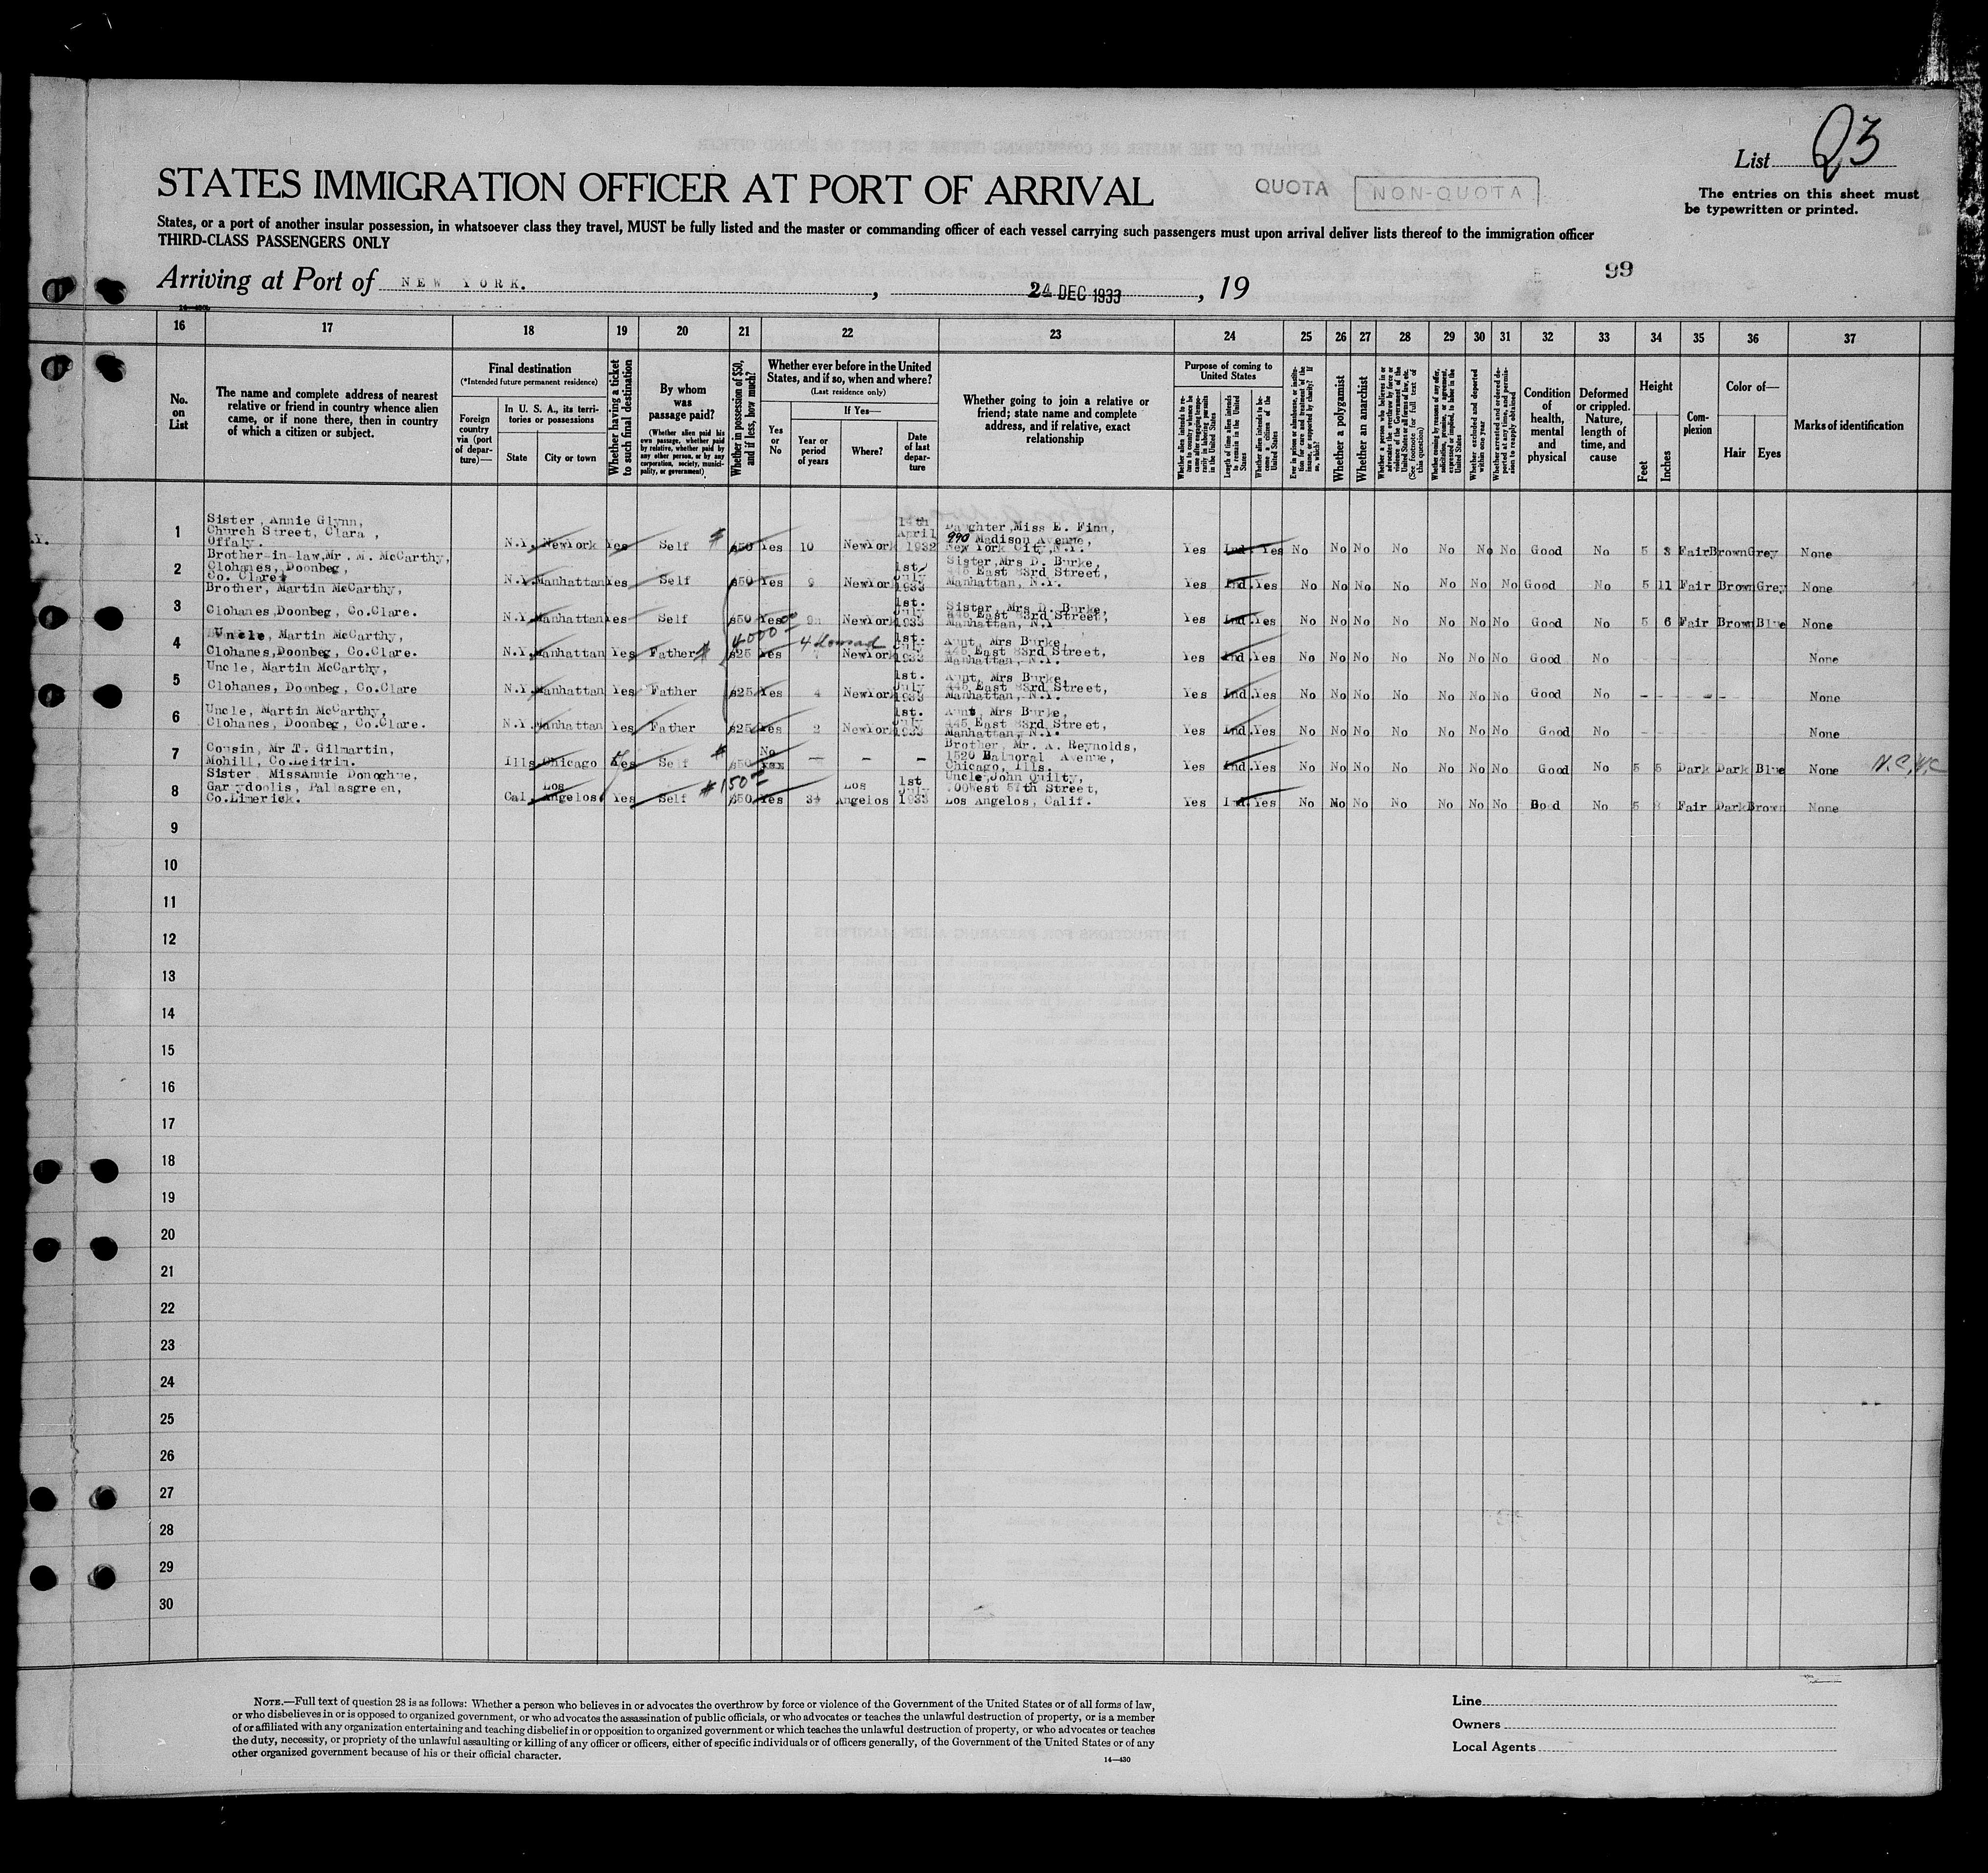 List 23
STATES IMMIGRATION OFFICER AT PORT OF ARRIVAL
QUOTA
NON-QUOTA
The entries on this sheet must
be typewritten or printed.
States, or a port of another insular possession, in whatsoever class they travel, MUST be fully listed and the master or commanding officer of each vessel carrying such passengers must upon arrival deliver lists thereof to the immigration officer
THIRD-CLASS PASSENGERS ONLY
99
Arriving at Port of NEW YORK. , 24 DEC 1933 , 19
16 17 18 19 20 21 22 23 24 25 26 27 28 29 30 31 32 33 34 35 36 37
No.
on
List
The name and complete address of nearest
relative or friend in country whence alien
came, or if none there, then in country
of which a citizen or subject.
Final destination
(*Intended future permanent residence)
Foreign
country
via (port
of depar-
ture)—
In U. S. A., its terri-
tories or possessions
State
City or town
Whether having a ticket
to such final destination
By whom
was
passage paid?
(Whether alien paid his
own passage, whether paid
by relative, whether paid by
any other person, or by any
corporation, society, munici-
pality, or government)
Whether in possession of $50,
and if less, how much?
Whether ever before in the United
States, and if so, when and where?
(Last residence only)
Yes
or
No
If Yes—
Year or
period
of years
Where?
Date
of last
depar-
ture
Whether going to join a relative or
friend; state name and complete
address, and if relative, exact
relationship
Purpose of coming to
United States
Length of time alien intends
to remain in the United
States
Whether alien intends to be-
come a citizen of the
United States
Whether a polygamist
Whether an anarchist
Whether excluded and deported
within one year
Condition
of
health,
mental
and
physical
Deformed
or crippled.
Nature,
length of
time, and
cause
Height
Feet
Inches
Com-
plexion
Color of—
Hair
Eyes
Marks of identification
1 Sister, Annie Glynn,
Church Street, Clara,
Offaly.
N.Y. NewYork Yes Self $50 Yes 10 NewYork 14th April 1932
Daughter, Miss E. Finn,
990 Madison Avenue,
New York City, N.Y.
Yes Ind. Yes No No No No No No No Good No 5 8 Fair Brown Grey None
2 Brother-in-law, Mr. M. McCarthy,
Clohanes, Doonbeg,
Co. Clare.
N.Y. Manhattan Yes Self $50 Yes 9 NewYork 1st July 1933
Sister, Mrs D. Burke,
445 East 83rd Street,
Manhattan, N.Y.
Yes Ind. Yes No No No No No No No Good No 5 11 Fair Brown Grey None
3 Brother, Martin McCarthy,
Clohanes, Doonbeg, Co.Clare.
N.Y. Manhattan Yes Self $50 Yes 9 NewYork 1st. July 1933
Sister, Mrs D. Burke,
445 East 83rd Street,
Manhattan, N.Y
Yes Ind. Yes No No No No No No No Good No 5 6 Fair Brown Blue None
4 Uncle, Martin McCarthy,
Clohanes, Doonbeg, Co.Clare.
N.Y. Manhattan Yes Father $25 Yes NewYork 1st. July 1933
Aunt, Mrs Burke,
445 East 83rd Street,
Manhattan, N.Y.
Yes Ind. Yes No No No No No No No Good No None
5 Uncle, Martin McCarthy,
Clohanes, Doonbeg, Co.Clare
N.Y. Manhattan Yes Father $25 Yes 4 NewYork 1st. July 1933
Aunt, Mrs Burke,
445 East 83rd Street,
Manhattan, N.Y.
Yes Ind. Yes No No No No No No No Good No None
6 Uncle, Martin McCarthy,
Clohanes, Doonbeg, Co.Clare.
N.Y. Manhattan Yes Father $25 Yes 2 NewYork 1st. July 1933
Aunt, Mrs Burke,
445 East 83rd Street,
Manhattan, N.Y.
Yes Ind. Yes No No No No No No No Good No None
7 Cousin, Mr T. Gilmartin,
Mohill, Co.Leitrim.
Ills Chicago Yes Self $50 No — — —
Brother, Mr. A. Reynolds,
1520 Balmoral Avenue,
Chicago, Ills.
Yes Ind. Yes No No No No No No No Good No 5 5 Dark Dark Blue None
8 Sister MissAnnie Donoghue,
Garrydoolis, Pallasgreen,
Co.Limerick.
Cal. Los Angelos Yes Self $150 $50 Yes Los Angelos 1st July 1933
Uncle, John Quilty,
West 57th Street,
Los Angelos, Calif.
Yes Ind. Yes No No No No No No No Good No 5 Fair Dark Brown None
9
10
11
12
13
14
15
16
17
18
19
20
21
22
23
24
25
26
27
28
29
30
NOTE.—Full text of question 28 is as follows: Whether a person who believes in or advocates the overthrow by force or violence of the Government of the United States or of all forms of law,
or who disbelieves in or is opposed to organized government, or who advocates the assassination of public officials, or who advocates or teaches the unlawful destruction of property, or is a member
of or affiliated with any organization entertaining and teaching disbelief in or opposition to organized government or which teaches the unlawful destruction of property, or who advocates or teaches
the duty, necessity, or propriety of the unlawful assaulting or killing of any officer or officers, either of specific individuals or of officers generally, of the Government of the United States or of any
other organized government because of his or their official character.
14—430
Line
Owners
Local Agents